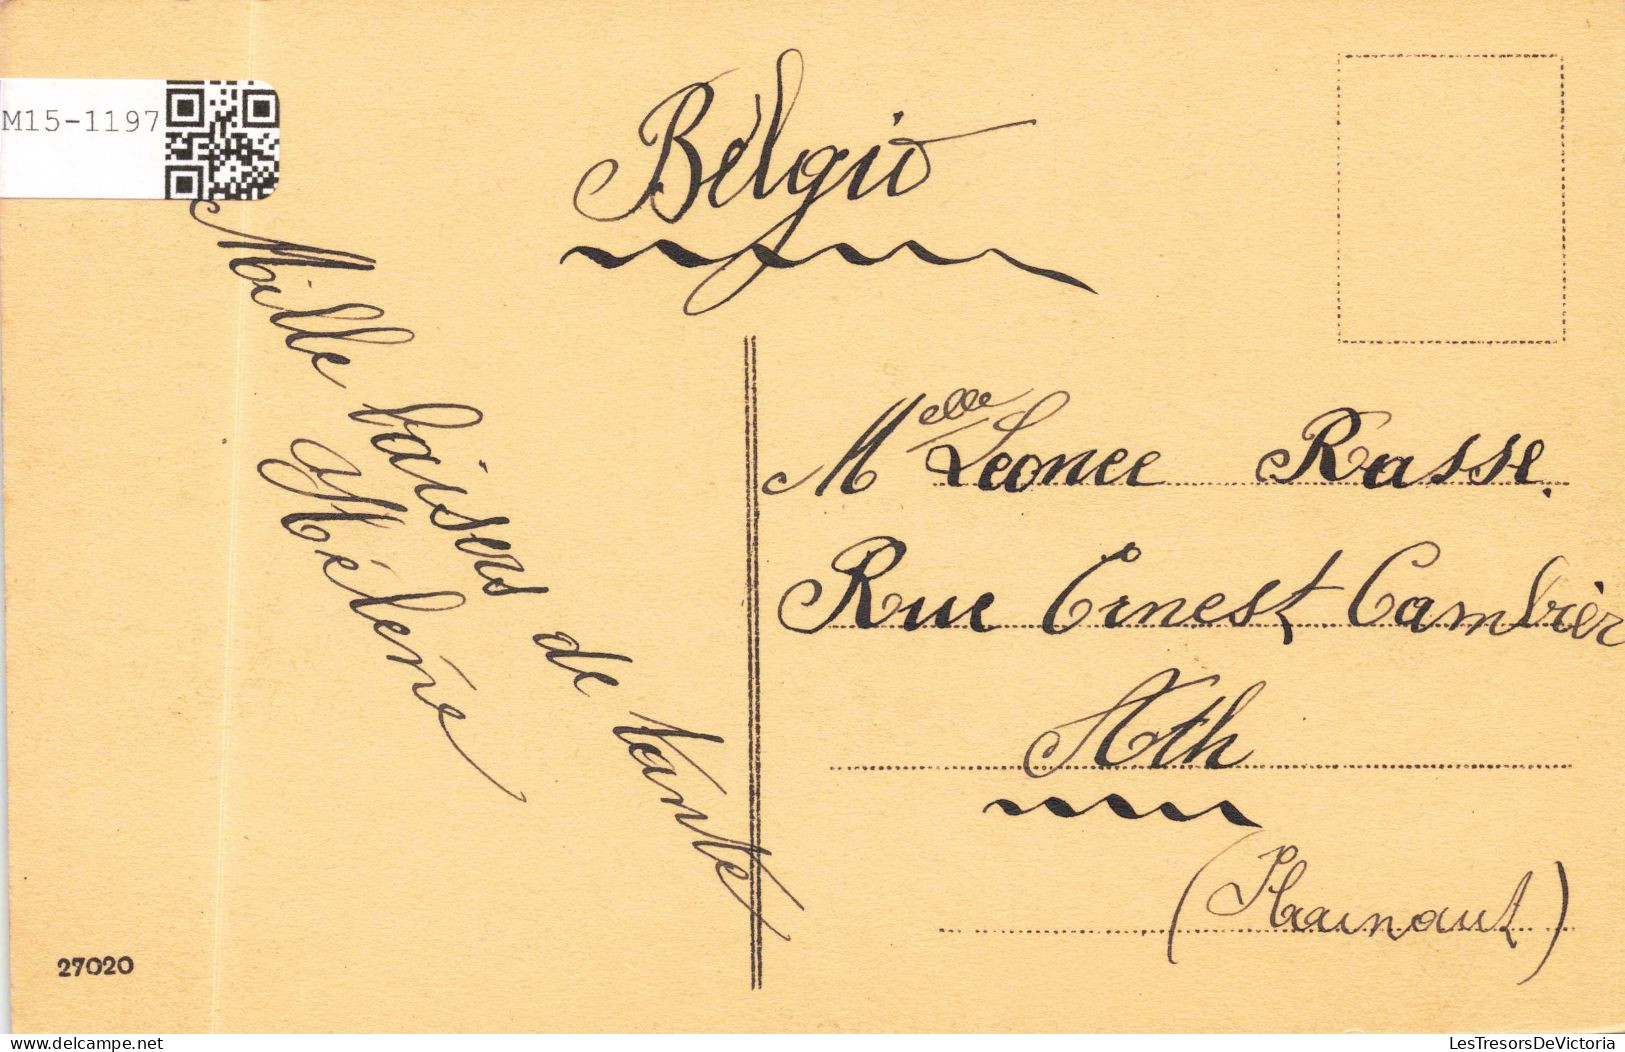 M15-1197
Belgio
Mille baisers de tante
Hélène
Melle Leonce Rasse.
Rue Ernest Cambier
Ath
(Hainaut)
27020
delcampe.net
LesTresorsDeVictoria